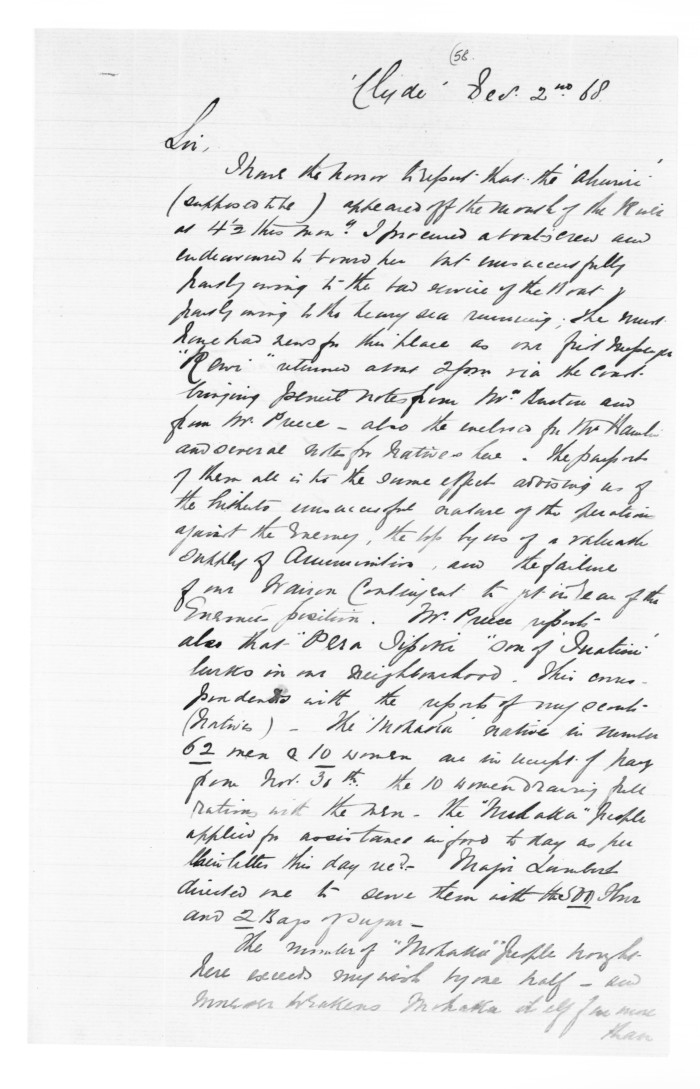 (58
'Clyde' Dec. 2nd 68
Sir,
I have the honor to report that the 'Ahuriri'
(supposed to be) appeared off the mouth of the River
at 4½ this morn.g I procured a boats crew and
endeavoured to board her but unsuccessfully
partly owing to the bad service of the Boat &
partly owing to the heavy sea running; She must
have had news for this place as our first Messenger
"Rewi" returned at 2 pm via the Coast
bringing pencil notes from Mr and
from Mr Preece – also the enclosed for Mr Hamlin
and several notes for Natives here. The purport
of them all is to the same effect advising us of
the hitherto unsuccessful nature of the operations
against the Enemy, the loss by us of a valuable
supply of Ammunition, and the failure
of our Wairoa Contingent to get in rear of the
Enemies position. Mr. Preece reports
also that "Pera Tipoki" son of
lurks in our neighbourhood. This corres-
pondends with the reports of my scouts
(Natives) – The 'Mohaka' natives in number
62 men & 10 women are in receipt of pay
from Nov. 30th. the 10 women drawing full
rations with the men – the "Mohaka" People
applied for assistance in food to day as per
their letter this day recd – Major Lambert
directed me to serve them with the 500 flour
and 2 Bags of Sugar –
The number of "Mohaka" People brought
here exceeds my wish by one half – and
moreover weakens Mohaka itself far more
than